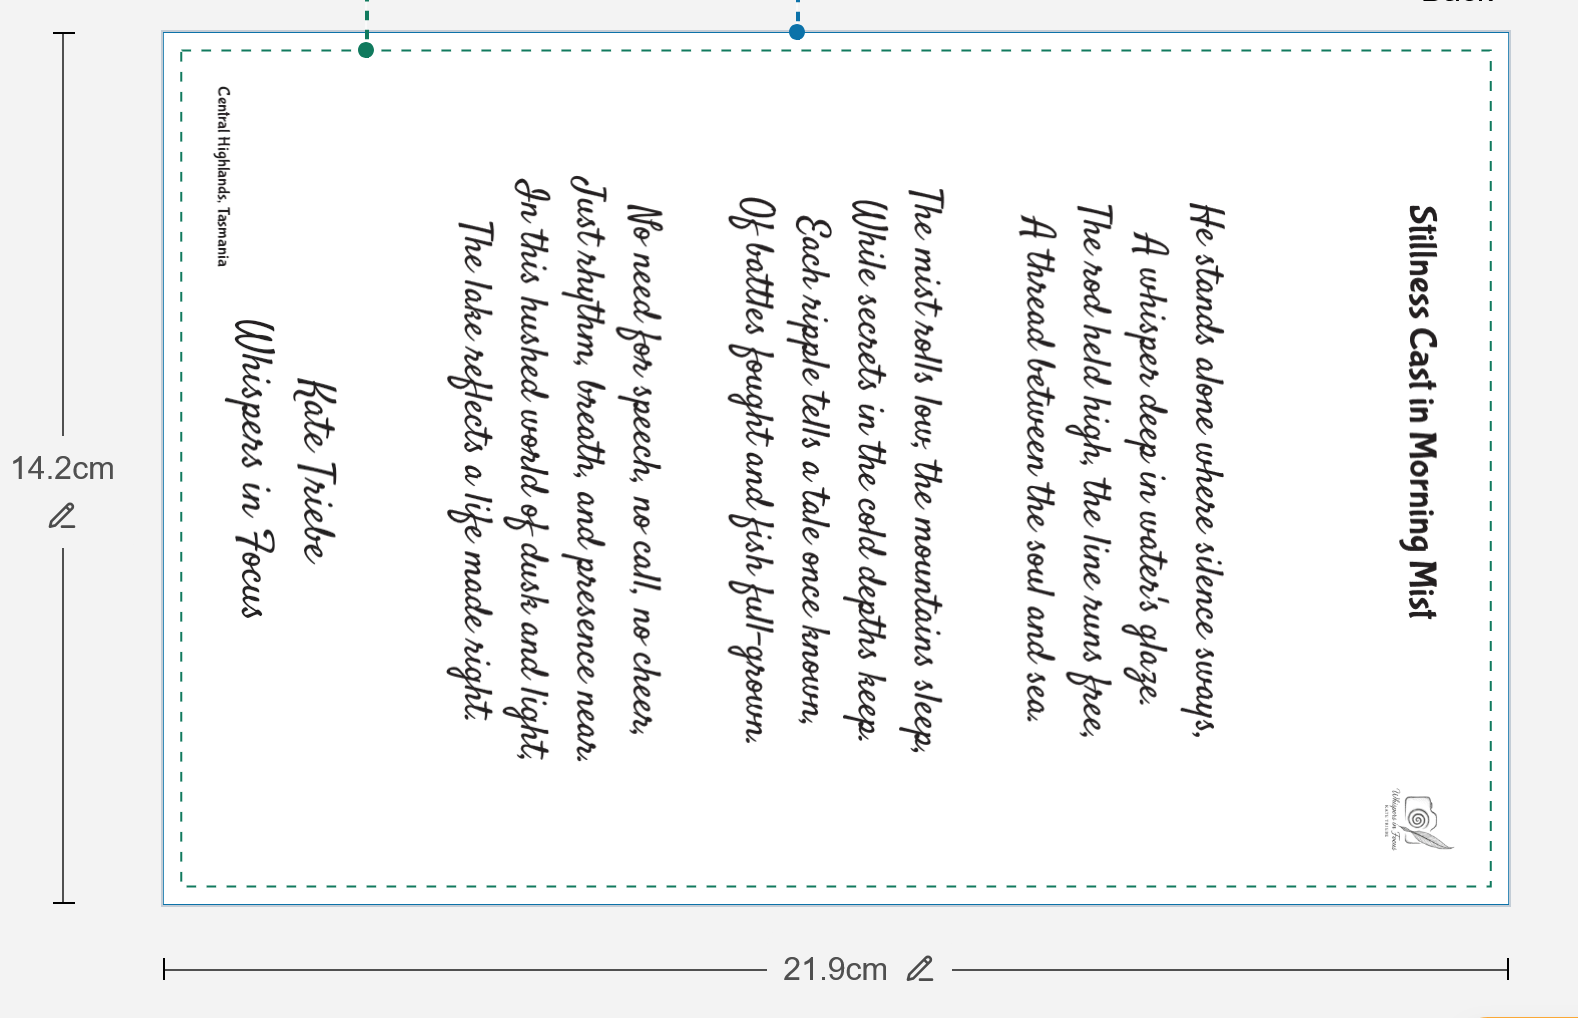 Stillness Cast in Morning Mist
He stands alone where silence sways,
A whisper deep in water's glaze.
The rod held high, the line runs free,
A thread between the soul and sea.
The mist rolls low, the mountains sleep,
While secrets in the cold depths keep.
Each ripple tells a tale once known,
Of battles fought and fish full-grown.
No need for speech, no call, no cheer,
Just rhythm, breath, and presence near.
In this hushed world of dusk and light,
The lake reflects a life made right.
Kate Triebe
Whispers in Focus
Central Highlands, Tasmania
Whispers in Focus
KATE TRIEBE
14.2cm
21.9cm